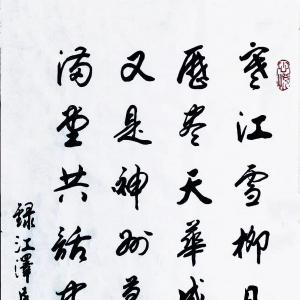 寒江雪柳日
歷盡天華成
又是神州草
滿堂共話中
錄江澤民